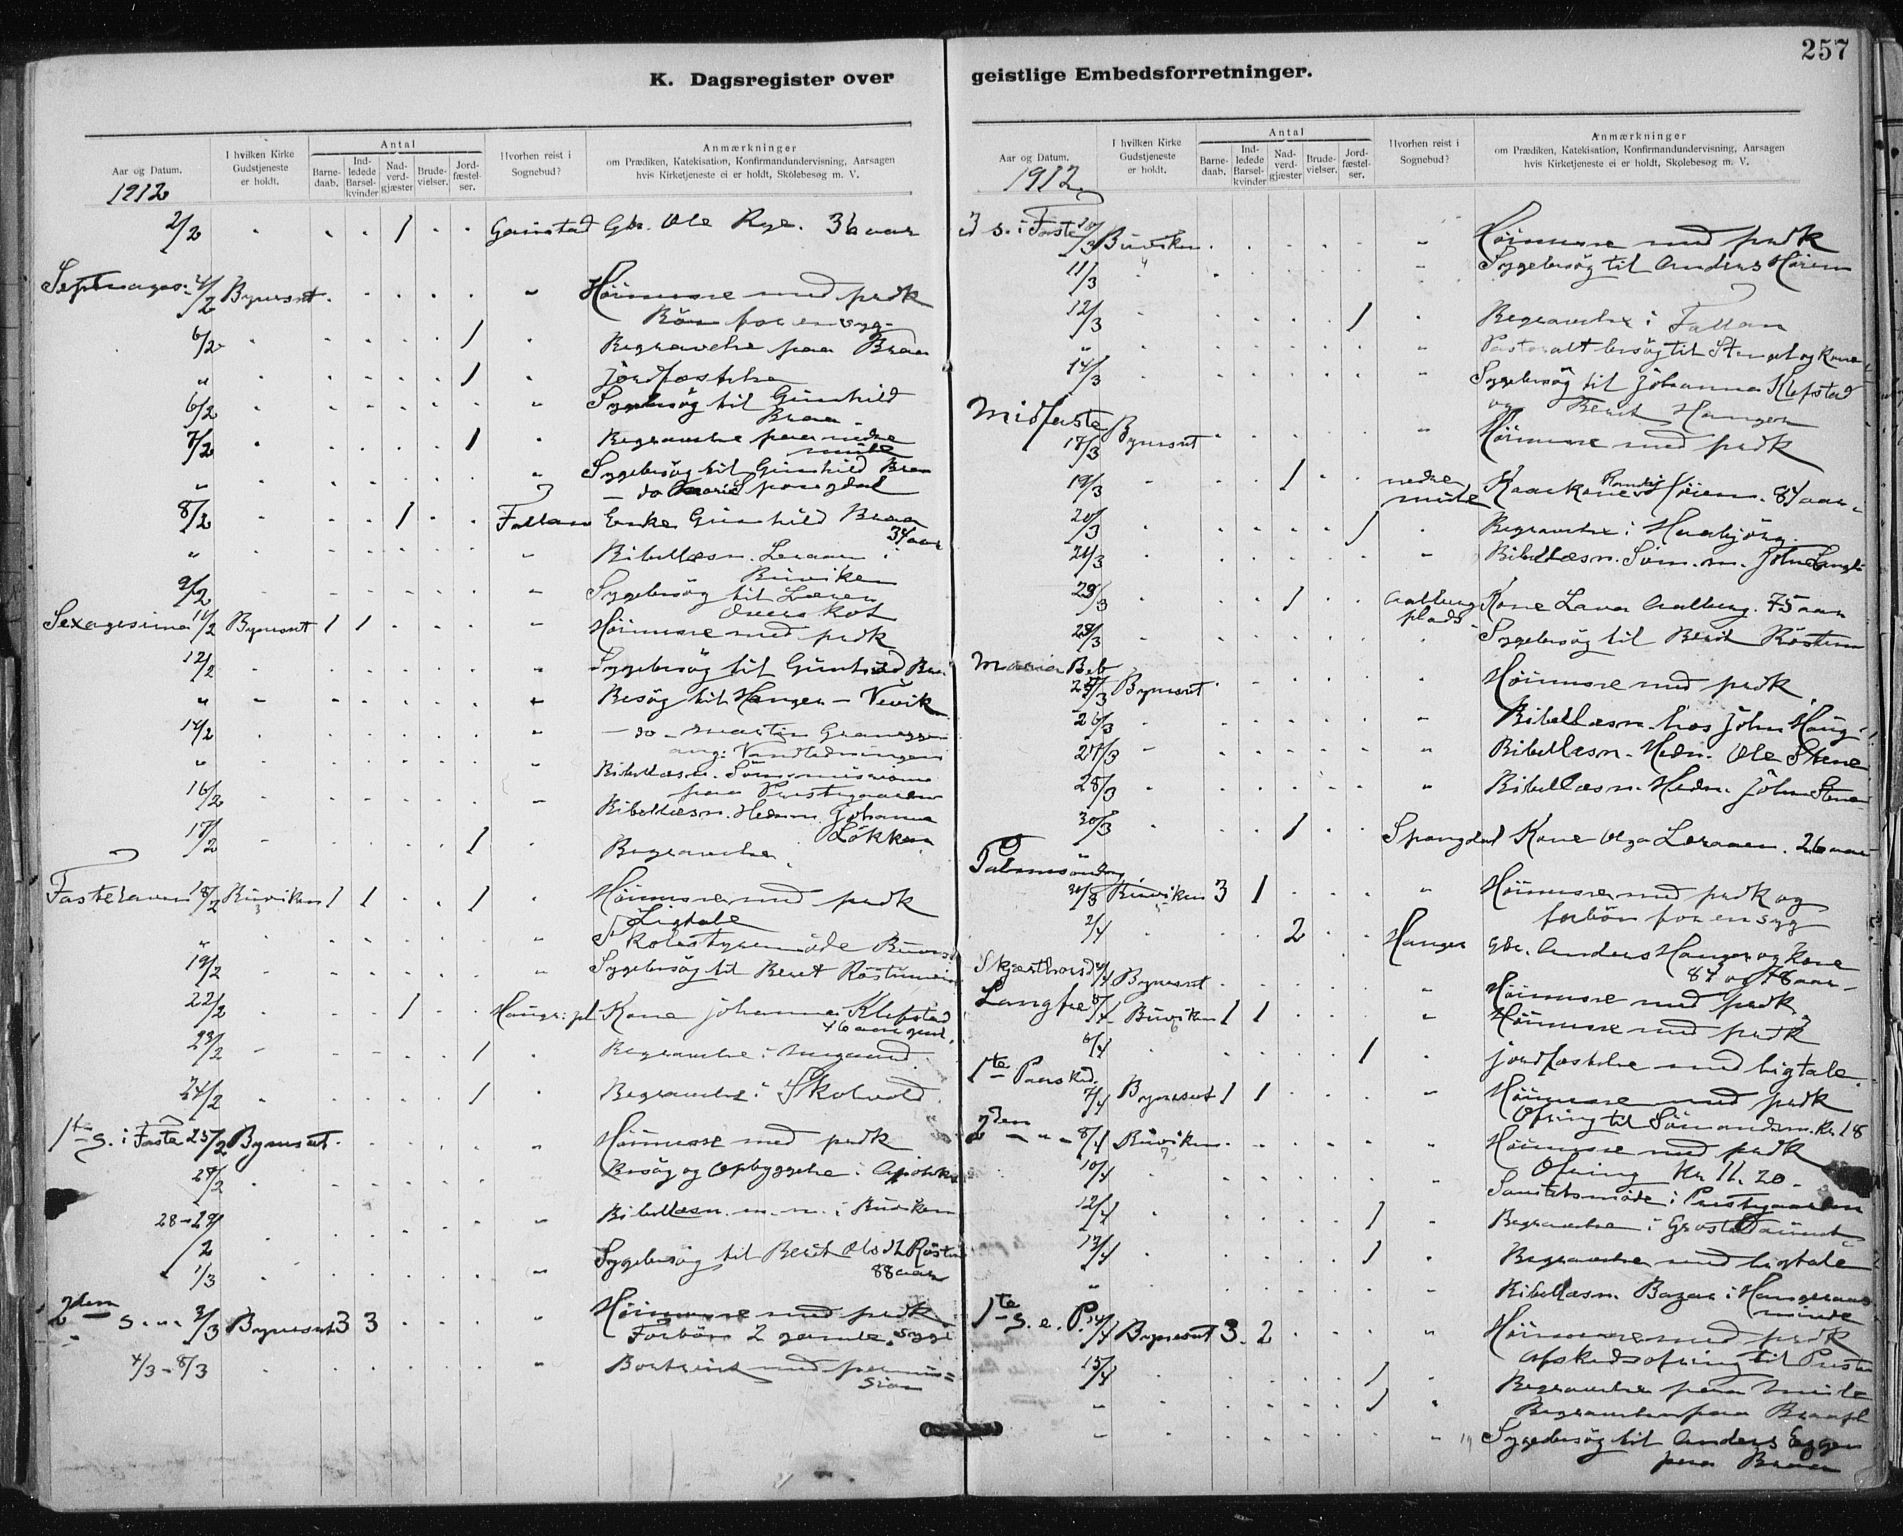 257
K. Dagsregister over geistlige Embedsforretninger.
Aar og Datum.
1912
I hvilken Kirke Gudstjeneste er holdt.
Antal
Barnedaab.
Indledede Barselkvinder
Nadverdgjæster
Brudevielser.
Jordfæstelser.
Hvorhen reist i Sognebud?
Anmærkninger
om Prædiken, Katekisation, Konfirmandundervisning, Aarsagen
hvis Kirketjeneste ei er holdt, Skolebesøg m. V.
2/2 1 Gbr. Ole Rye. 36 aar
4/2 Bynesset. " Höimesse med prdk
Bön for en syg
6/2 1 Begravelse paa Braa
" 1 Jordfæstelse
6/2 " Sygebesög til Gunhild
Braa
7/2 1 Begravelse paa nedre
Mule
" " Sygebesög til Gunhild Braa
— do Marie Spongdal
8/2 1 Fallan Enke Gunhild Braa
" " Bibellæsn. Leraaen i
Buviken
9/2 " Sygebesög til Lærer
Overskot
Sexagesima 11/2 Bynesset 1 1 " Höimesse med prdk
12/2 " Sygebesög til Gunhild Braa
" " Besög til Hanger – Vevik
14/2 " — do — Martin
ang. Vandledningen
" " Bibellæsn. Sömmmisione
paa Prestgaarden
16/2 " Bibellæsn. Hedn. Johanna
Lökken
17/2 1 Begravelse
Fastelavn 18/2 Buviken 1 1 1 Höimesse med prdk
Ligtale
" " Skolestyremöde
19/2 " Sygebesög til Beret
22/2 1 Haugs pl Kone Johanna Klefstad
46 aar gml.
23/2 1 Begravelse i
24/2 1 Begravelse i Skolvold
1te S. i Faste 25/2 Bynesset. Höimesse med prdk
Besög og Opbyggelse i
28–29/2 " Bibellæsn. m. m. i Buviken
1/3 " Sygebesög til Beret
88 aar
2den S. " " 3/3 Bynesset 3 3 " Höimesse med prdk
Forbön 2 gamle syge
4/3 – 8/3 " Bortreist med permis=
sion
Aar og Datum.
1912.
I hvilken Kirke Gudstjeneste er holdt.
Antal
Barnedaab.
Indledede Barselkvinder
Nadverdgjæster
Brudevielser.
Jordfæstelser.
Hvorhen reist i Sognebud?
Anmærkninger
om Prædiken, Katekisation, Konfirmandundervisning, Aarsagen
hvis Kirketjeneste ei er holdt, Skolebesøg m. V.
3 S. i Faste 10/3 Buviken " Höimesse med prdk
11/3 " Sygebesög til Anders Höiem
12/3 1 Begravelse i Fallan
" " Pastoralt besög til Stengel og Kone
14/3 " Sygebesög til Johanna Klefstad
og Beret Hangen
Midfaste 17/3 Bynesset " Höimesse med prdk
19/3 1 nedre Mule Kaarkone Randi Höiem. 84 aar
20/3 1 Begravelse i
21/3 " Bibellæsn. Söm. m. John
23/3 1 Aalberg plads Kone Lava Aalberg. 75 aar
Sygebesög til Beret
Maria Beb
25/3 Bynesset Höimesse med prdk
26/3 " Bibellæsn. hos John Haug
27/3 " Bibellæsn. Hedn. Ole Stene
28/3 " Bibellæsn. Hedn. John Stene
30/3 1 Spongdal Kone Olga Leraaen. 26 aar
Palmesöndag
31/3 Buviken 3 1 " Höimesse med prdk og
forbön for en syg
2/4 2 Hanger Gbr. Anders Hanger og Kone
84 og 78 aar
Skjærthorsd 4/4 Bynesset " Höimesse med prdk
Langfre 5/4 Buviken 1 1 " Höimesse med prdk
6/4 1 Jordfæstelse med ligtale
1te Paaskd. 7/4 Bynesset 1 1 " Höimesse med prdk
Ofring til Sömandsm. Kr. 18
2den — " — 8/4 Buviken " Höimesse med prdk
Ofring Kr. 11.20
10/4 " Sanitetsmöde i Prestgaarden
12/4 1 Begravelse i
13/4 1 Begravelse med ligtale
" Bibellæsn. Bazar i
minde
1te S. e. P. 14/4 Bynesset 3 2 " Höimesse med prdk
Afskedsofring til Presten
15/4 1 Begravelse paa Mule
" 1 Begravelse paa
" " Sygebesög til Anders Eggen
paa Braaen